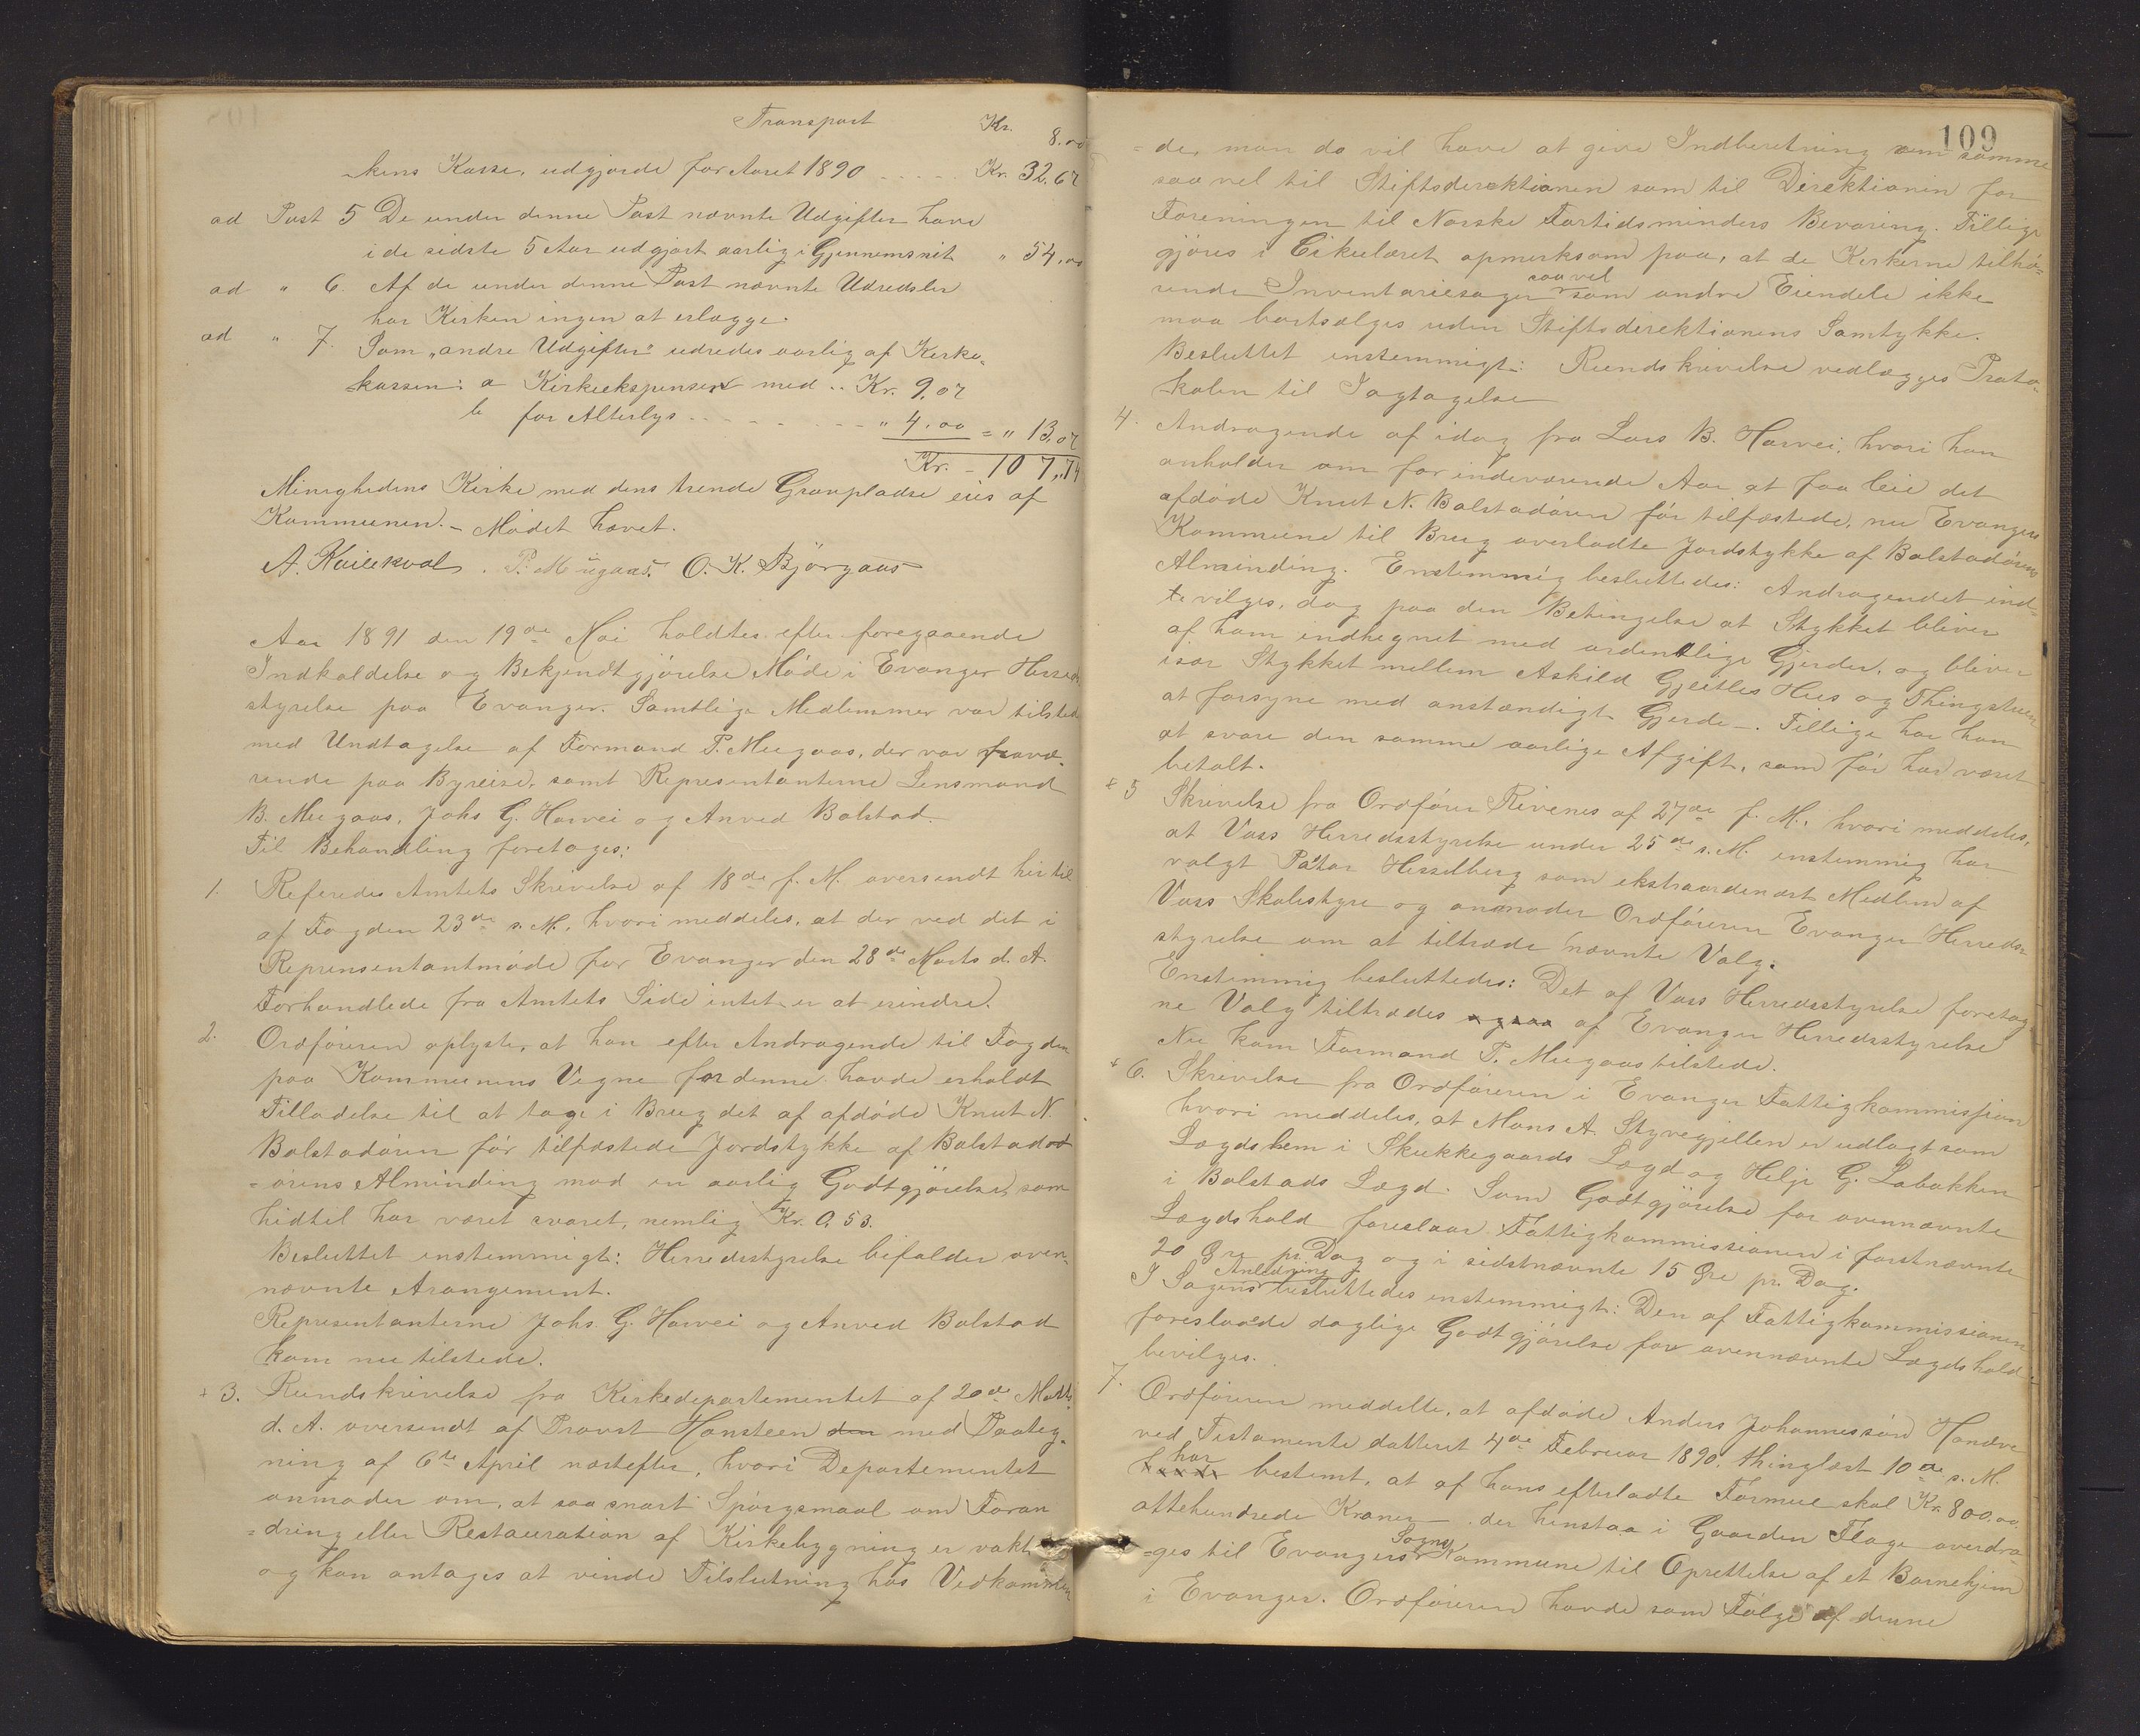 Transport Kr. 8.00
kens Kasse, udgjorde for Aaret 1890 ..... Kr. 32.67
ad Post 5 De under denne Post nævnte Udgifter have
i de sidste 5 Aar udgjort aarlig i Gjennemsnit " 54,00
ad " 6. Af de under denne Post nævnte Udredsler
har Kirken ingen at erlægge.
ad " 7. Som "andre Udgifter" udredes aarlig af Kirke-
kassen: a Kirkeekspenser med .. Kr. 9.07
b for Alterlys - - - - - - - " 4.00 = " 13,07
Kr. - 107,74
Menighedens Kirke med dens trende Gravpladse eies af
Kommunen. - Mødet hævet.
A. Kvilekval. P. Mugaas. O. K. Bjørgaas
Aar 1891 den 19de Mai holdtes efter foregaaende
Indkaldelse og Bekjendtgjørelse Møde i Evanger Herreds
styrelse paa Evanger. Samtlige Medlemmer var tilstede
med Undtagelse af Formand P. Mugaas, der var fravæ-
rende paa Byreise, samt Representanterne Lensmand
B. Mugaas, Johs G. Horvei og Anved Bolstad.
Til Behandling foretoges:
1. Referedes Amtets Skrivelse af 18de f. M. oversendt hertil
af Fogden 23de s. M., hvori meddeles, at der ved det i
Reprensentantmøde for Evanger den 28de Marts d. A.
Forhandlede fra Amtets Side intet er at erindre.
2. Ordføreren oplyste, at han efter Andragende til Fogden
paa Kommunens Vegne for denne havde erholdt
Tilladelse til at tage i Brug det af afdøde Knut N.
Bolstadøren før tilfæstede Jordstykke af Bolstad
=ørens Alminding mod en aarlig Godtgjørelse, som
hidtil har været svaret, nemlig Kr. 0,53.
Besluttet enstemmigt: Herredsstyrelse bifalder oven-
nævnte Arangement.
Representanterne Johs. G. Horvei og Anved Bolstad
kom nu tilstede.
+ 3. Rundskrivelse fra Kirkedepartementet af 20de Marts
d. A. oversendt af Provst Hansteen den med Paateg-
ning af 6te April næstefter, hvori Departementet
anmoder om, at saa snart Spørgsmaal om Foran
=dring eller Restauration af Kirkebygning er vakt
og kan antages at vinde Tilslutning hos Vedkommen
109
=de, man da vil have at give Indberetning om samme
saavel til Stiftsdirektionen som til Direktionin for
Foreningen til Norske Fortidsminders Bevaring. Tillige
gjøres i Cikulæret opmerksom paa, at de Kirkerne tilhø-
rende Inventariesager saavel som andre Eiendele ikke
maa bortsælges uden Stiftsdirektionens Samtykke.
Besluttet enstemmigt: Rundskrivelse vedlægges Proto-
kolen til Iagtagelse
4. Andragende af idag fra Lars B. Horvei, hvori han
anholder om for indeværende Aar at faa leie det
afdøde Knut N. Bolstadøren før tilfæstede, nu Evangers
Kommune til Brug overladte Jordstykke af Bolstadørens
Alminding. Enstemmig besluttedes: Andragendet ind-
vilges, dog paa den Betingelse at Stykket bliver
af ham indhegnet med ordentlige Gjerder, og bliver
især Stykket mellem Askild Gjeitles Hus og Thingstuen
at forsyne med anstændigt Gjerde -. Tillige har han
at svare den samme aarlige Afgift, som før har været
betalt.
+ 5 Skrivelse fra Ordfører Rivenes af 27de f. M., hvori meddeles,
at Voss Herredsstyrelse under 25de s. M. enstemmig har
valgt Pastor Hesselberg som ekstraordenært Medlem af
Voss Skolestyre og anmoder Ordføreren Evanger Herreds-
styrelse om at tiltræde nævnte Valg.
Enstemmig besluttedes: Det af Voss Herredsstyrelse foretag
ne Valg tiltrædes ogsaa af Evanger Herredsstyrelse
Nu kom Formand P. Mugaas tilstede.
+ 6. Skrivelse fra Ordføreren i Evanger Fattigkommission
hvori meddeles, at Mons A. Styvegjellen er udlagt som
Lægdslem i Skukkegaards Lægd og Helje G. Labakken
i Bolstads Lægd. Som Godtgjørelse for ovennævnte
Lægdshold foreslaar Fattigkommissionen i førstnævnte
20 Øre pr. Dag og i sidstnævnte 15 Øre pr. Dag.
I Sagens Anledning besluttedes enstemmigt: Den af Fattigkommissionen
foreslaaede daglige Godtgjørelse for ovennævnte Lægdshold
bevilges.
7. Ordføreren meddelte, at afdøde Anders Johannessøn Horvei
ved Testamente datteret 4de Februar 1890, thinglæst 10de s. M.
har bestemt, at af hans efterladte Formue skal Kr. 800.00
ottehundrede Kroner - der henstaa i Gaarden Flage overdra-
=ges til Evangers Sogns Kommune til Oprettelse af et Barnehjem
i Evanger. Ordføreren havde som Følge af denne